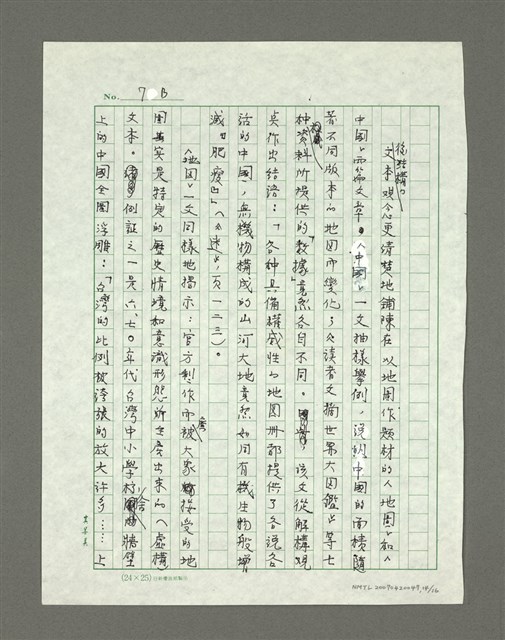 No. 7 B
後結構的
文本觀念更清楚地鋪陳在以地圖作題材的〈地圖〉和〈
中國〉兩篇文章。〈中國〉一文抽樣舉例，說明中國的面積隨
著不同版本的地圖而變化，《讀者文摘世界大圖鑑》等七
種資料所提供的「數據」竟然各自不同。該文從解構觀
點作出結語：「各种具備權威性的地图冊都提供了各說各
話的中國，無機物構成的山河大地竟然如同有機生物般增
減『肥瘦』」（《迷》，頁一二三）。
〈地図〉一文同樣地揭示：官方制作而被大眾接受的地
图其实是特定的歷史情境和意識形態所生產出來的〈虛構
文本。例証之一是六、七〇年代台灣中小學校牆壁
上的中國全圖浮雕：「台灣的比例被誇張的放大許多……上
(24×25)
NMTL 20070420049, 14/16